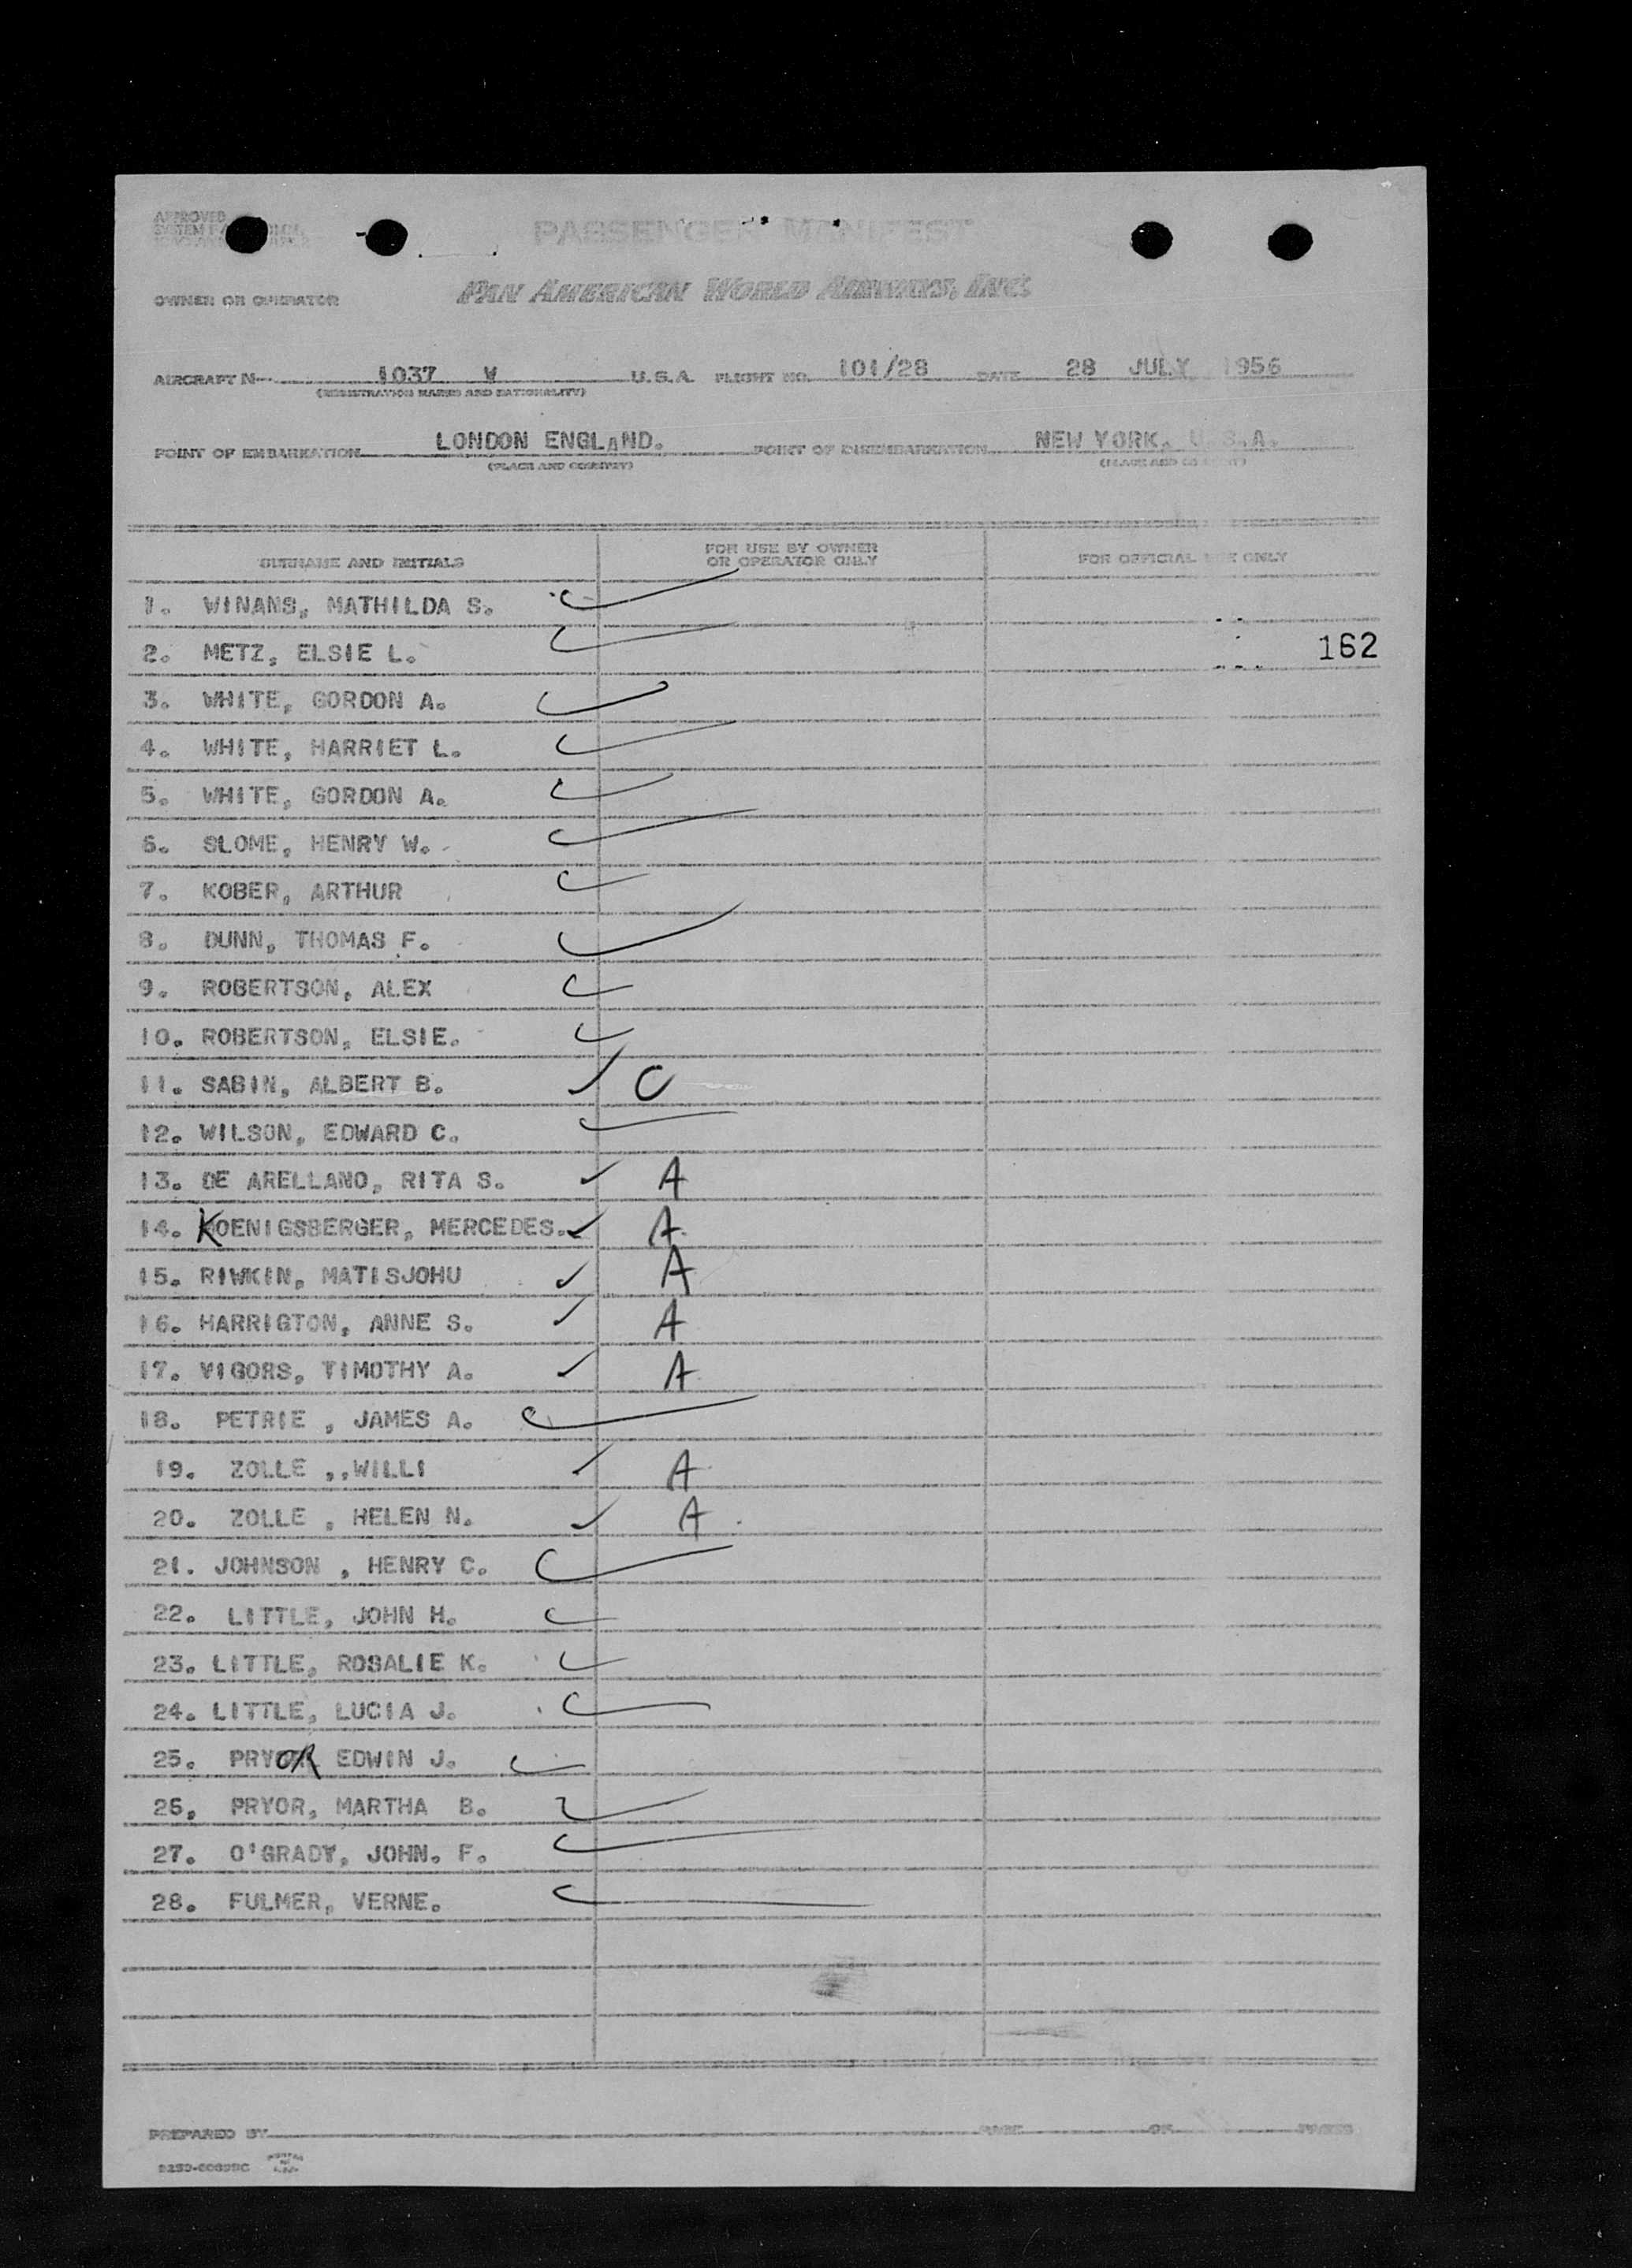 APPROVED
PASSENGER MANIFEST
OWNER OR OPERATOR PAN AMERICAN WORLD AIRWAYS, INC.
AIRCRAFT N- 1037 V U.S.A. FLIGHT NO. 101/28 DATE 28 JULY 1956
(REGISTRATION MARKS AND NATIONALITY)
POINT OF EMBARKATION LONDON ENGLAND. POINT OF DISEMBARKATION NEW YORK, U.S.A.
(PLACE AND COUNTRY) (PLACE AND COUNTRY)
SURNAME AND INITIALS FOR USE BY OWNER OR OPERATOR ONLY FOR OFFICIAL USE ONLY
1. WINANS, MATHILDA S.
2. METZ, ELSIE L. 162
3. WHITE, GORDON A.
4. WHITE, HARRIET L.
5. WHITE, GORDON A.
6. SLOME, HENRY W.
7. KOBER, ARTHUR
8. DUNN, THOMAS F.
9. ROBERTSON, ALEX
10. ROBERTSON, ELSIE.
11. SABIN, ALBERT B. ✓ C
12. WILSON, EDWARD C.
13. DE ARELLANO, RITA S. ✓ A
14. KOENIGSBERGER, MERCEDES. ✓ A
15. RIWKIN, MATISJOHU ✓ A
16. HARRIGTON, ANNE S. ✓ A
17. VIGORS, TIMOTHY A. ✓ A
18. PETRIE , JAMES A.
19. ZOLLE ,,WILLI ✓ A
20. ZOLLE , HELEN N. ✓ A
21. JOHNSON , HENRY C.
22. LITTLE, JOHN H.
23. LITTLE, ROSALIE K.
24. LITTLE, LUCIA J.
25. PRYOR EDWIN J.
26, PRYOR, MARTHA B.
27. O'GRADY, JOHN. F.
28. FULMER, VERNE.
PREPARED BY PAGE OF PAGES